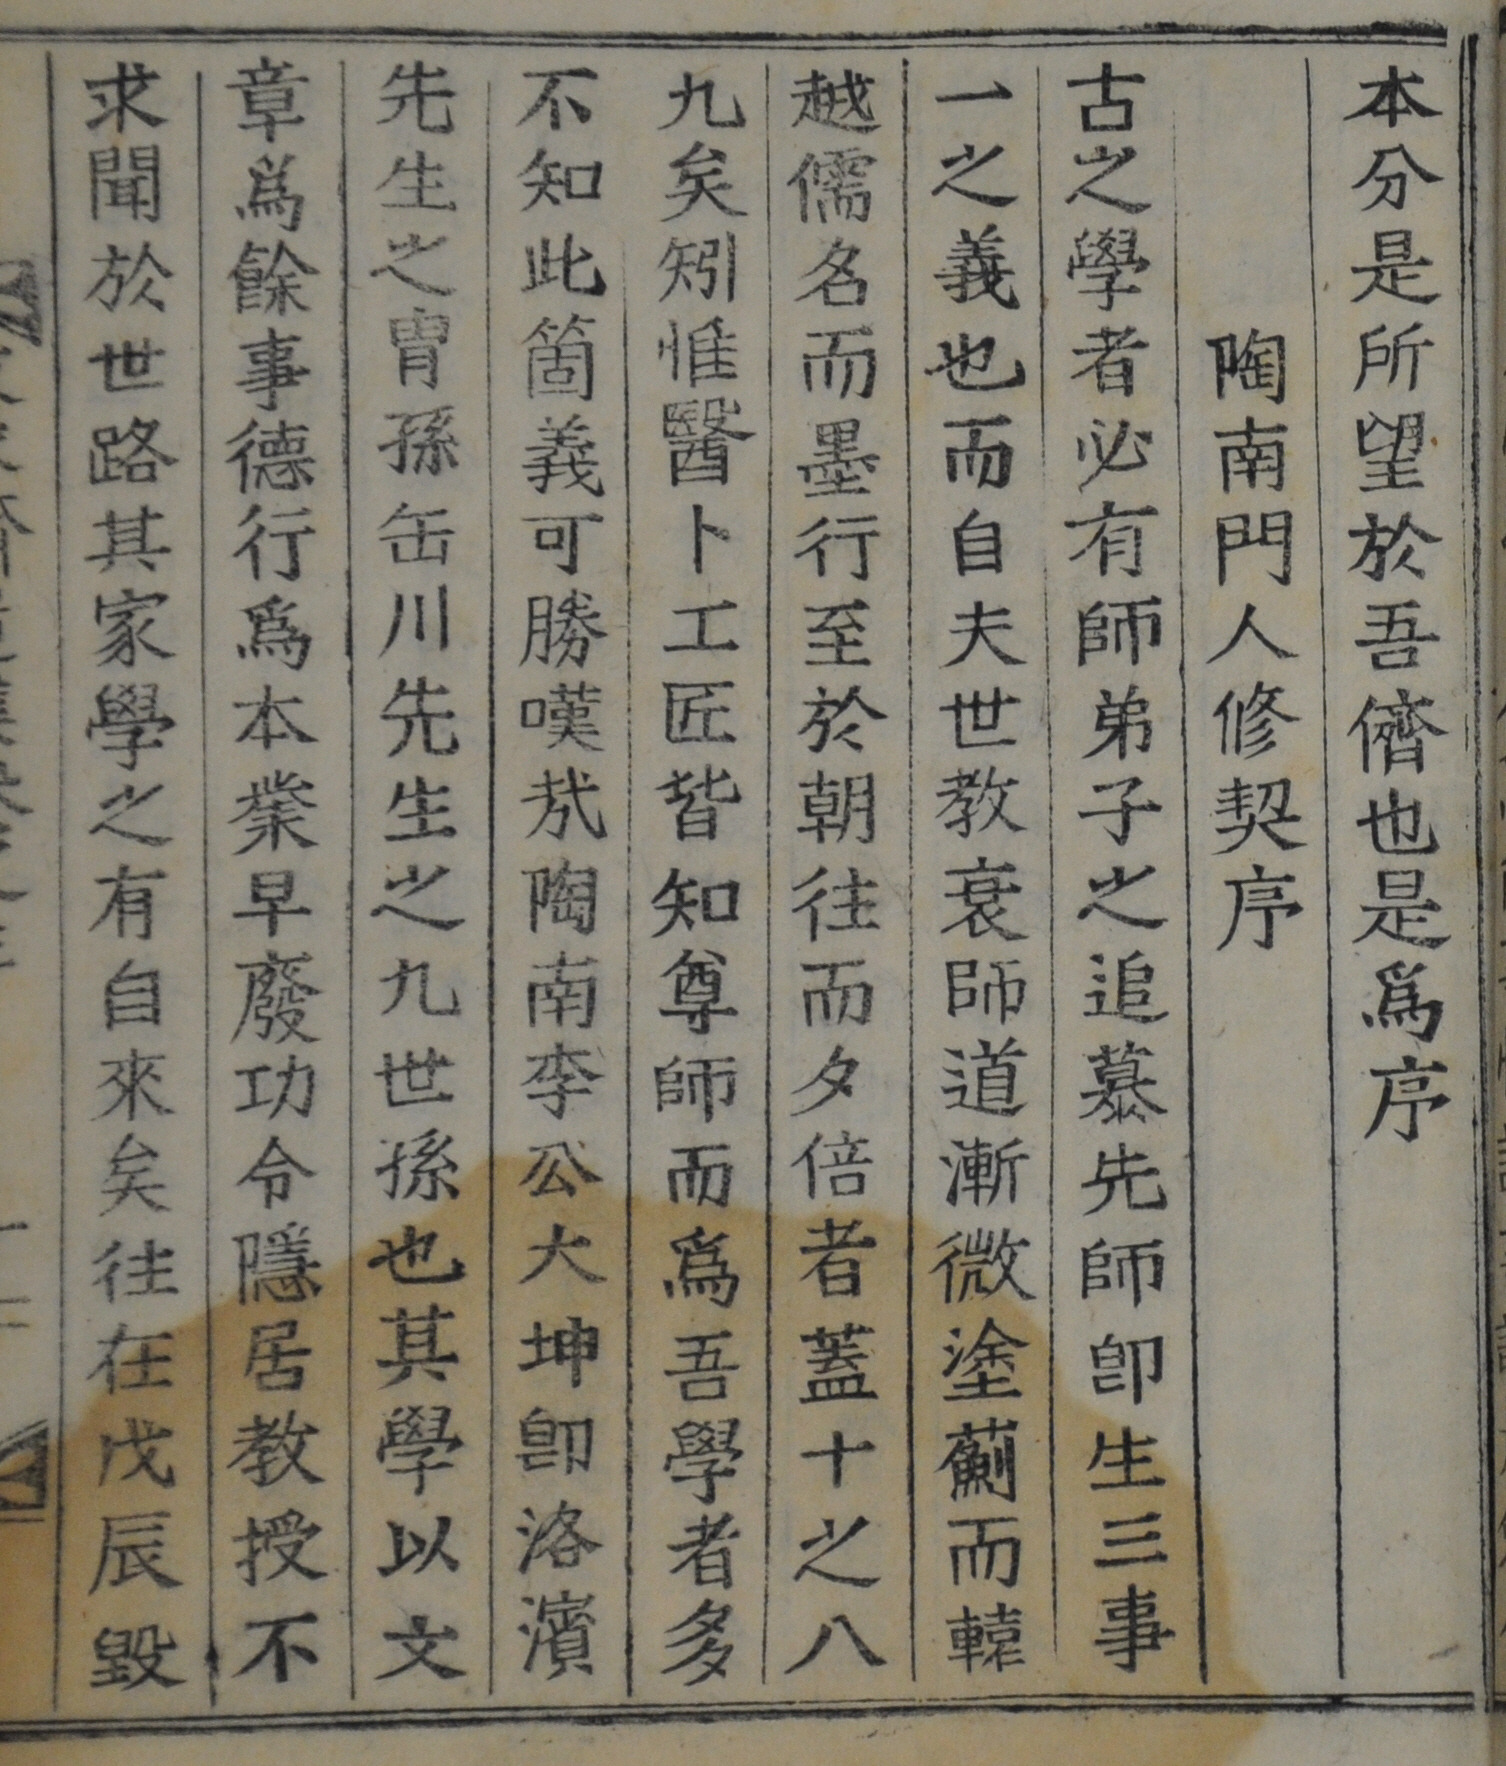 本分是所望於吾儕也是爲序
陶南門人修契序
古之學者必有師弟子之追慕先師卽生三事
一之義也而自夫世教衰師道漸微塗薊而轅
越儒名而墨行至於朝往而夕倍者蓋十之八
九矣矧惟醫卜工匠皆知尊師而爲吾學者多
不知此箇義可勝嘆㢤陶南李公大坤卽洛濱
先生之胄孫缶川先生之九世孫也其學以文
章爲餘事德行爲本業早廢功令隱居教授不
求聞於世路其家學之有自來矣往在戊辰毀